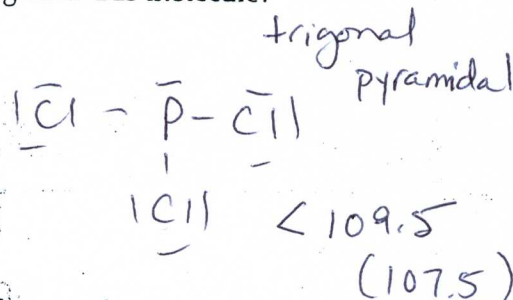 trigonal
pyramidal
|Cl - P - Cl|
|
|Cl|
< 109.5
(107.5)